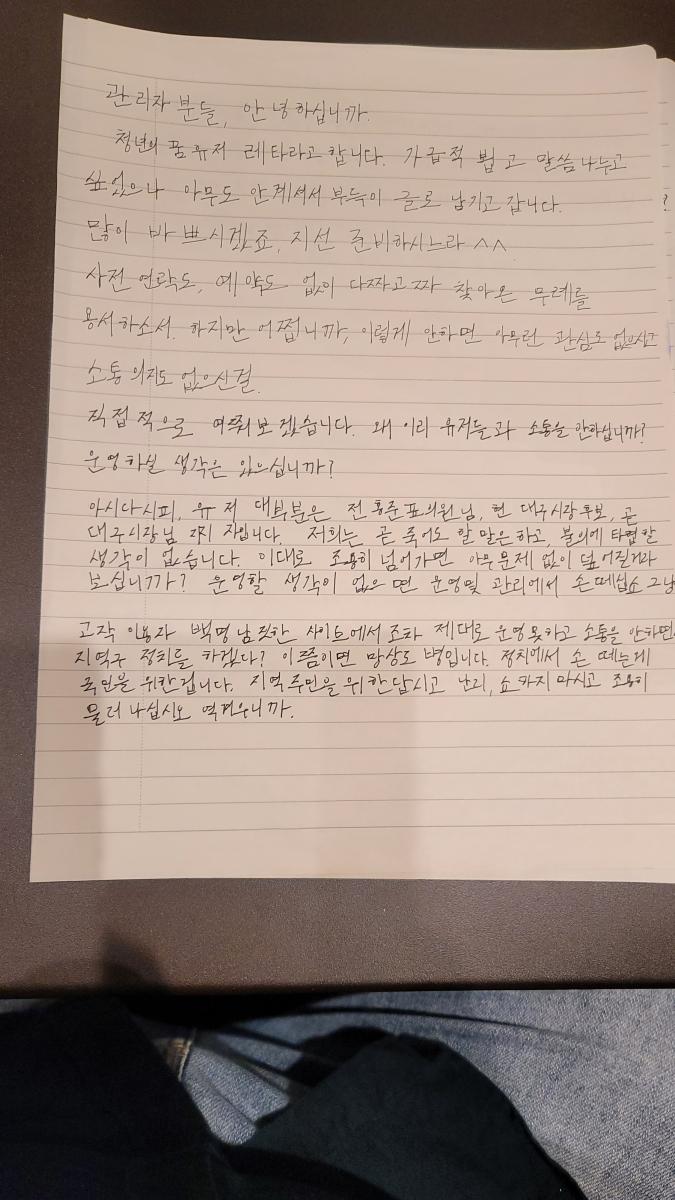 관리자 분들, 안녕하십니까.
청년의 꿈 유저 레타라고 합니다. 가급적 뵙고 말씀나누고
싶었으나 아무도 안계셔서 부득이 글로 남기고 갑니다.
많이 바쁘시겠죠, 지선 준비하시느라 ^^.
사전 연락도, 예약도 없이 다짜고짜 찾아온 무례를
용서하소서. 하지만 어쩝니까, 이렇게 안하면 아무런 관심도 없으시고
소통 의지도 없으신걸.
직접적으로 여쭤보겠습니다. 왜 이리 유저들과 소통을 안하십니까?
운영하실 생각은 있으십니까?
아시다시피, 유저 대부분은 전 홍준표의원님, 현 대구시장후보, 곧
대구시장님 지지자입니다. 저희는 곧 죽어도 할 말은 하고, 불의에 타협할
생각이 없습니다. 이대로 조용히 넘어가면 아무문제 없이 덮어질거라
보십니까? 운영할 생각이 없으면 운영및 관리에서 손떼십쇼 그냥
고작 이용자 백명 남짓한 사이트에서 조차 제대로 운영못하고 소통을 안하면서
지역구 정치를 하겠다? 이쯤이면 망상도 병입니다. 정치에서 손 떼는게
국민을 위한겁니다. 지역주민을 위한답시고 난리, 쇼 까지 마시고 조용히
물러나십시오 역겨우니까.
?